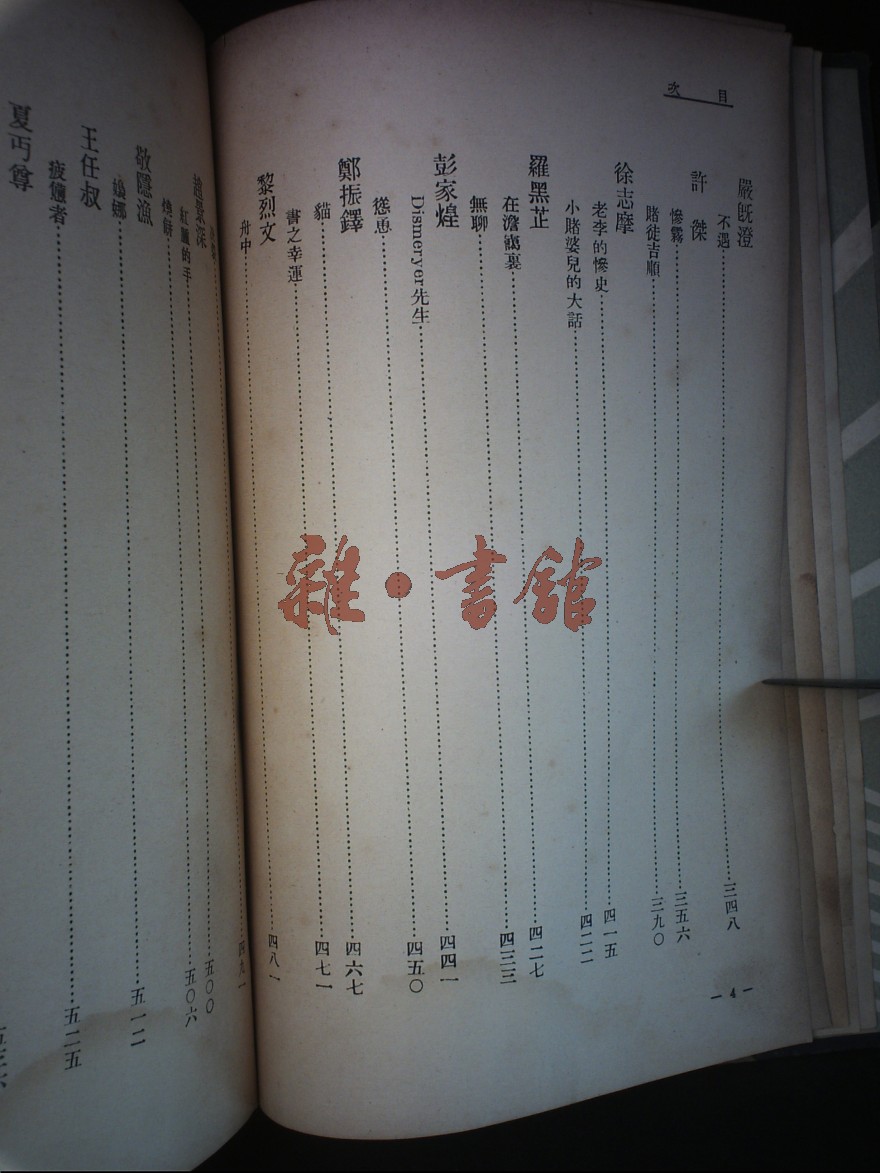 目次
嚴旣澄
不遇……三四八
許傑
慘霧……三五六
賭徒吉順……三九〇
徐志摩
老李的慘史……四一五
小賭婆兒的大話……四二二
羅黑芷
在澹靄裏……四二七
無聊……四三三
彭家煌
Dismeryer先生……四四一
慫恿……四五〇
鄭振鐸
貓……四六七
書之幸運……四七一
黎烈文
舟中……四八一
四九一
紅腫的手……五〇〇
燒餅……五〇六
敬隱漁
嫋娜……五一二
王任叔
疲憊者……五二五
夏丏尊
—4—
雜·書館